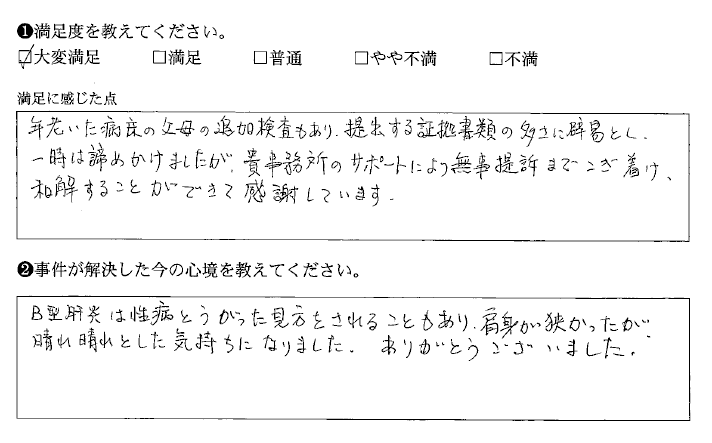 ❶満足度を教えてください。
☑大変満足 □満足 □普通 □やや不満 □不満
満足に感じた点
年老いた病床の父母の追加検査もあり、提出する証拠書類の多さに辟易とし、
一時は諦めかけましたが、貴事務所のサポートにより無事提訴までこぎ着け、
和解することができて感謝しています。
❷事件が解決した今の心境を教えてください。
B型肝炎は性病とうがった見方をされることもあり、肩身が狭かったが、
晴れ晴れとした気持ちになりました。 ありがとうございました。